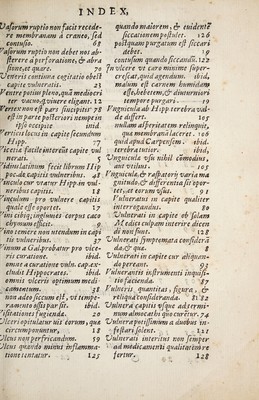 INDEX,
Vasorum ruptio non facit recede-
re membranam à craneo, sed
contusio. 68
Vasorum ruptio non debet nos ab-
sterrere a perforatione, & abra
sione, at quare. 70
Ventris continua egitatio obest
capite vulneratis. 23
Venter potius pleno, quã mediocri
ter vacuo, sit vivere eligant. 12
Vertex non est pars sincipitis 78
est in parte posteriori nempe in
ipso occipite inid.
Verticis locus in capite secundum
Hipp. 77
Victus facile interent capite vul
nerati.
Vidius latinum fecit librum Hip
poc. de capitis vulneribus. 48
Vinculo cur vtatur Hipp. in vul-
neribus capitis. 18
Vinculum pro vulnere capitis
quale esse oportet. 17
Vini cibiq; ingluvies corpus caco
chymum efficit. 9
Vino temere non vtendum in capi
tis vulneribus. 37
Vinum a Gal. probatur pro vice-
ris curatione. ibid.
omne à curatione vuln. cap. ex-
cludit Hippocrates. ibid.
omnis vlceris optimum medi
camentum. 38
non adeo siccum est, vt tempe-
ramento ossis par sit. ibid.
Visitationes fugienda. 20
Vlceri opitulatur vis eorum, qua
circumponuntur. 18
Vlcus non perfricandum. 59
Vlcus quando minus inflamma-
tione tentatur. 125
quando maiorem, & euidente
siccationem postulet. 126
postquam purgatum est siccari
debet. 19
contusum quando siccandũ. 122
In vlcere vt caro minime super-
crescat, quid agendum. ibid,
malum est carnem humidam
esse, hebetem, & diuturniori
tempore purgari. 19
Vnguicula ab Hipp. terebra val-
de differt. 105
nullam asperitatem relinquit,
qua membranã laceret. 108
quid apud Carpensem. ibid.
terebra tutior. ibid,
Vnguicula vsu nihil cõmodius,
aut vtilius. 105
Vnguicula, & raspatorij varia ma
gnitudo, & differentia sit opor-
tet, at eorum vsus. 91
Vulnerati in capite qualiter
interrogandi. 80
Vulnerati in capite ob solam
& edisculpam interire dicen
di non sunt. 128
Vulnerati symptomata considerã
da, & qua. 80
Vulneratis in capite cur aliquan-
do pereant. 93
Vulnerantis instrumenti inquisi-
tio facienda. 87
Vulneris, quantitas, figura, &
reliqua consideranda. 81. 82
Vulnera capitis vsque ad termi-
num almocatim quo curetur. 74
Vulnera potissimum a duobus in-
festari solent. 121
Vulneratis interitus non semper
ad medicamenti qualitatẽ re-
fertur. 128